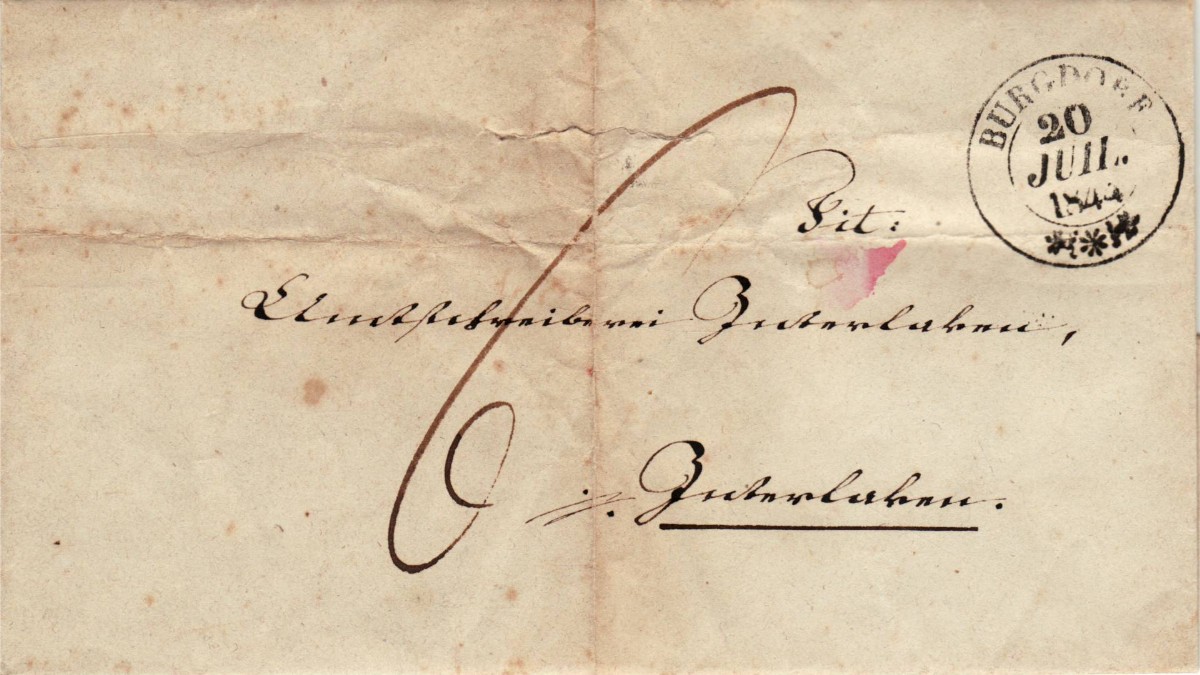 BURGDORF
20
JUIL.
1844
Tit:
Amtschreiberei Interlaken,
Interlaken.
6